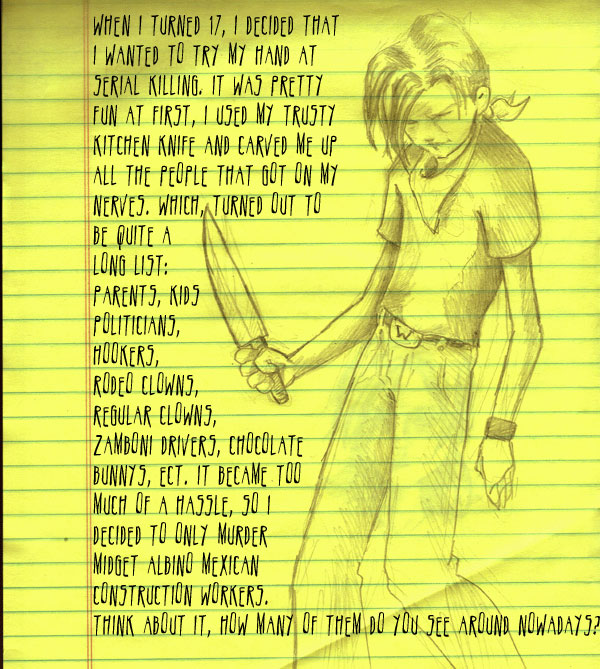 WHEN I TURNED 17, I DECIDED THAT
I WANTED TO TRY MY HAND AT
SERIAL KILLING. IT WAS PRETTY
FUN AT FIRST, I USED MY TRUSTY
KITCHEN KNIFE AND CARVED ME UP
ALL THE PEOPLE THAT GOT ON MY
NERVES. WHICH, TURNED OUT TO
BE QUITE A
LONG LIST:
PARENTS, KIDS
POLITICIANS,
HOOKERS,
RODEO CLOWNS,
REGULAR CLOWNS,
ZAMBONI DRIVERS, CHOCOLATE
BUNNYS, ECT. IT BECAME TOO
MUCH OF A HASSLE, SO I
DECIDED TO ONLY MURDER
MIDGET ALBINO MEXICAN
CONSTRUCTION WORKERS.
THINK ABOUT IT, HOW MANY OF THEM DO YOU SEE AROUND NOWADAYS?
W